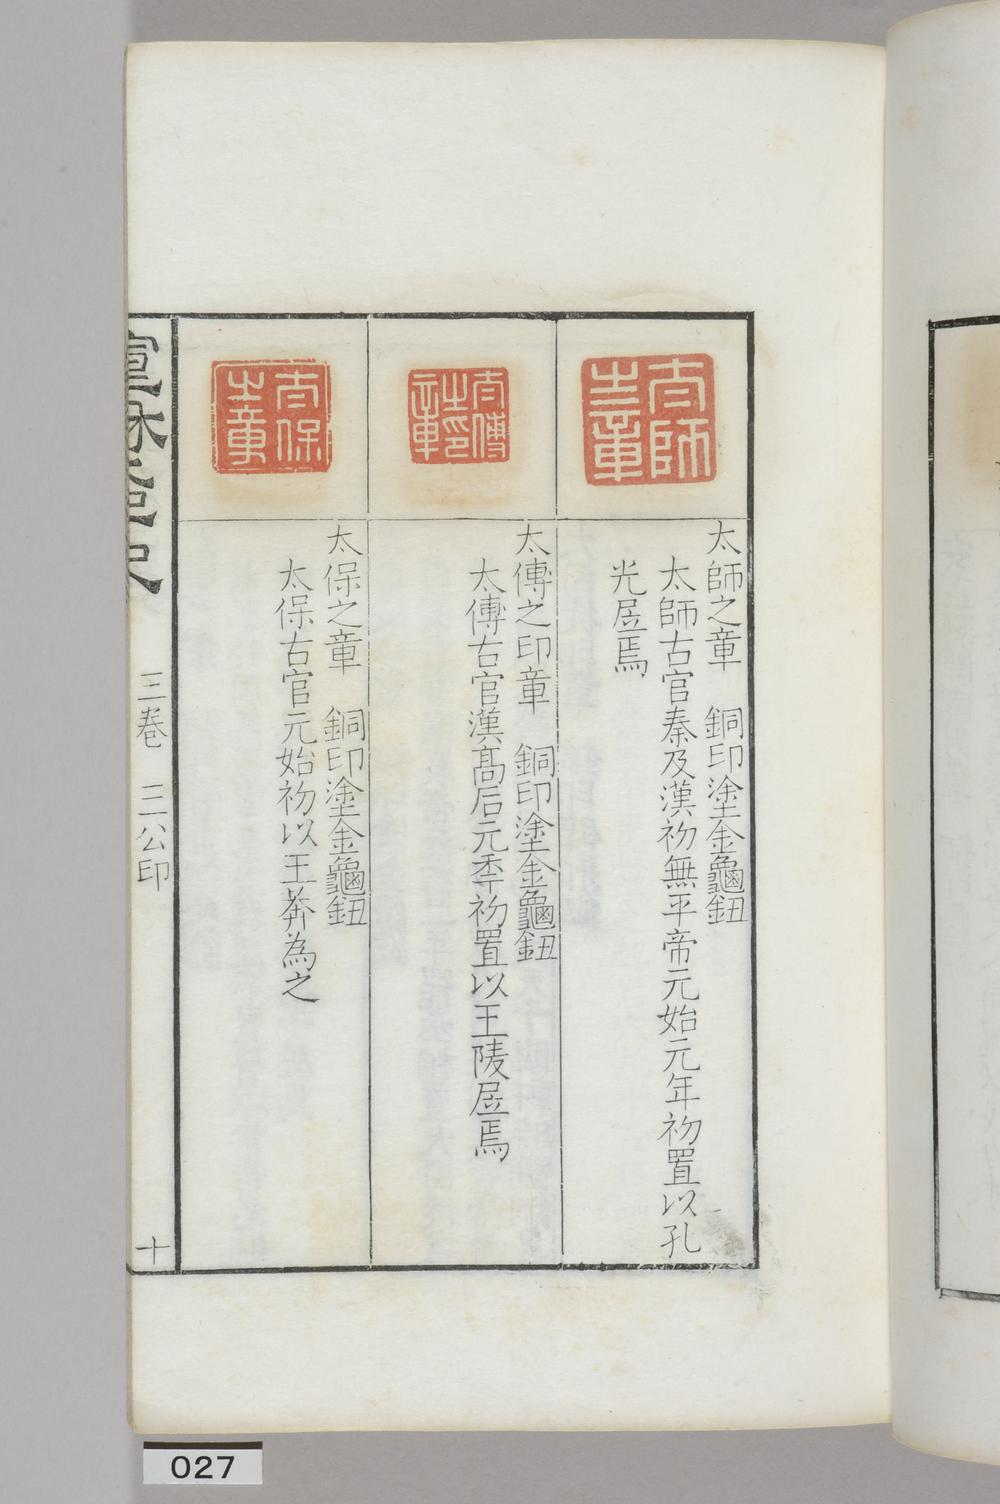 太師之章
太師之章　銅印塗金龜鈕
太師古官秦及漢初無平帝元始元年初置以孔
光居焉
太傅之印章
太傅之印章　銅印塗金龜鈕
太傅古官漢高后元秊初置以王陵居焉
太保之章
太保之章　銅印塗金龜鈕
太保古官元始初以王莽為之
宣和印史　三卷　三公印　十
027